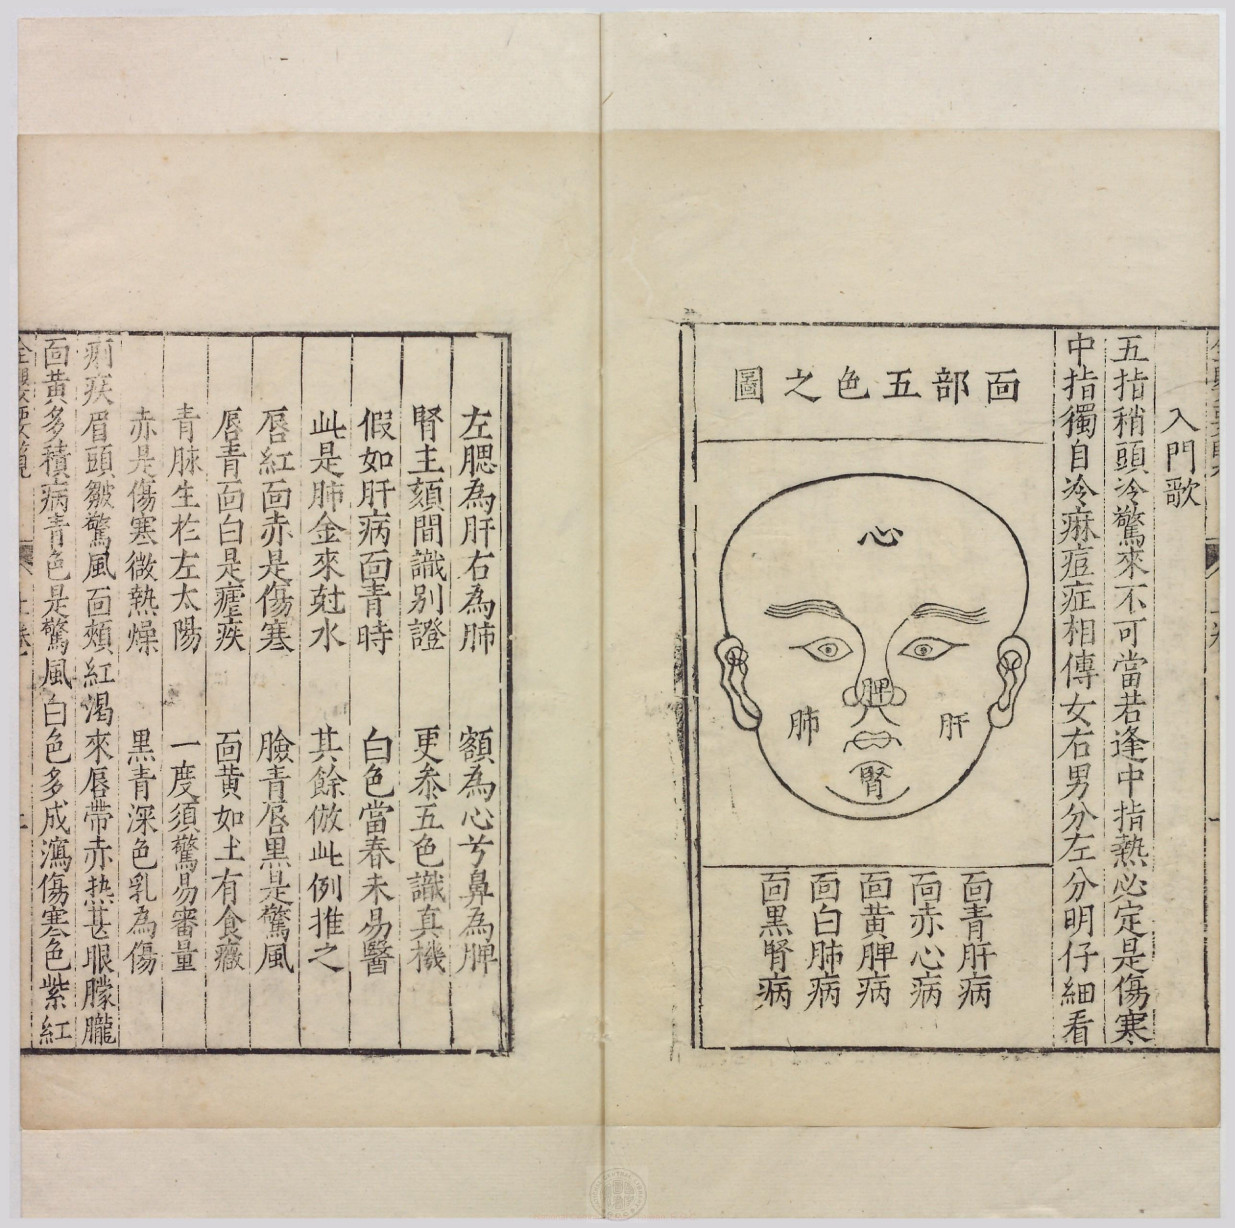 入門歌
五指稍頭冷驚來不可當若逢中指熱必定是傷寒
中指獨自冷痳痘症相傳女右男分左分明仔細看
面部五色之圖
心
脾
肺
肝
腎
面青肝病
面赤心病
面黃脾病
面白肺病
面黑腎病
左腮為肝右為肺 額為心兮鼻為脾
腎主頦間識別證 更叅五色識真機
假如肝病面青時 白色當春未易醫
此是肺金來尅水 其餘倣此例推之
唇紅面赤是傷寒 臉青唇黑是驚風
唇青面白是瘧疾 面黃如土有食癥
青脉生於左太陽 一度須驚易審量
赤是傷寒微熱燥 黑青深色乳為傷
痢疾眉頭皺驚風面頰紅渴來唇帶赤热甚眼朦朧
面黃多積病青色是驚風白色多成瀉傷寒色紫紅